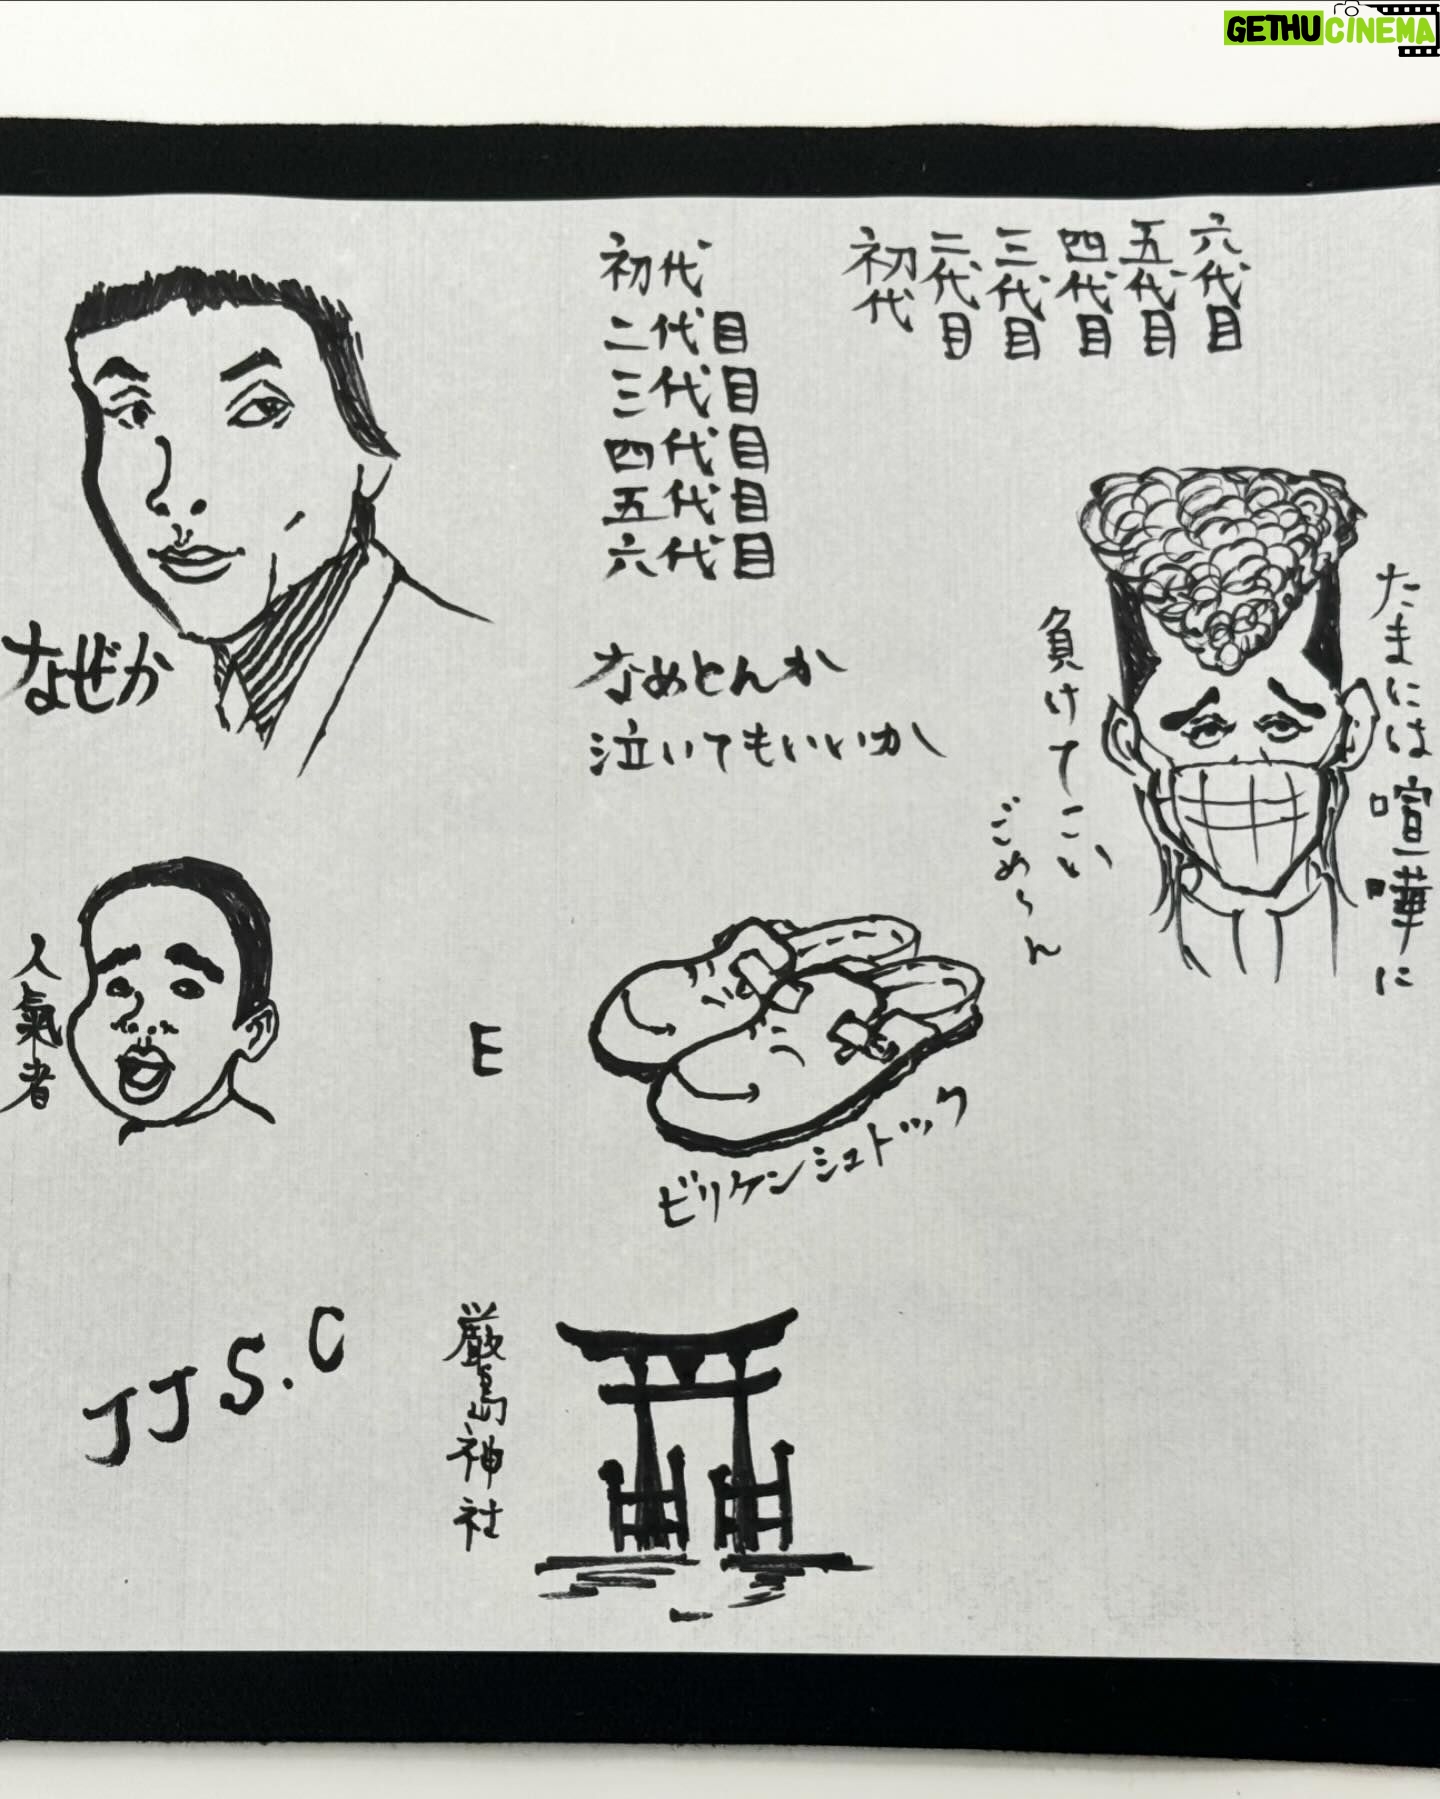 GETHUCINEMA
初代
二代目
三代目
四代目
五代目
六代目
初代
二代目
三代目
四代目
五代目
六代目
なめとんか
泣いてもいいか
なぜか
たまには喧嘩に
負けてこい
ごめ〜ん
人氣者
E
ビリケンシュトック
JJS.C
厳島神社